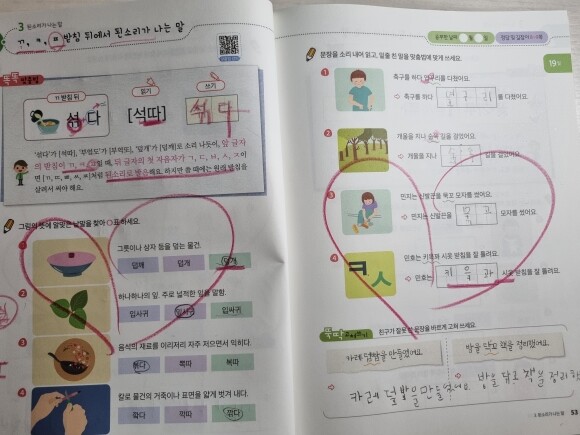 3 된소리가 나는 말
ㄲ, ㅋ, ㅍ 받침 뒤에서 된소리가 나는 말
ㄲ 받침 뒤
읽기
쓰기
섞다
[석따]
섞다
'섞다'가 [석따], '부엌도'가 [부억또], '덮개'가 [덥깨]로 소리 나듯이, 앞 글자
의 받침이 ㄲ, ㅋ, ㅍ일 때, 뒤 글자의 첫 자음자가 ㄱ, ㄷ, ㅂ, ㅅ, ㅈ이
면 [ㄲ, ㄸ, ㅃ, ㅆ, ㅉ]처럼 된소리로 발음해요. 하지만 쓸 때에는 원래 받침을
살려서 써야 해요.
그림의 뜻에 알맞은 낱말을 찾아 ○표 하세요.
1
그릇이나 상자 등을 덮는 물건.
덥깨
덥개
덮개
2
하나하나의 잎. 주로 넓적한 잎을 말함.
입사귀
잎사귀
입싸귀
3
음식의 재료를 이리저리 자주 저으면서 익히다.
볶다
뽁따
복따
4
칼로 물건의 거죽이나 표면을 얇게 벗겨 내다.
깍다
깍따
깎다
공부한 날짜 월 일
정답 및 길잡이
19일
문장을 소리 내어 읽고, 밑줄 친 말을 맞춤법에 맞게 쓰세요.
1
축구를 하다 를 다쳤어요.
축구를 하다 옆구리 를 다쳤어요.
2
개울을 지나 길을 걸었어요.
개울을 지나 길을 걸었어요.
3
민지는 신발끈을 묶꼬 모자를 썼어요.
민지는 신발끈을 묶고 모자를 썼어요.
4
ㅋㅅ
민호는 시옷 받침을 잘 틀려요.
민호는 키읔과 시옷 받침을 잘 틀려요.
친구가 잘못 쓴 문장을 바르게 고쳐 쓰세요.
카레 덥빱을 만들었어요.
방을 닥꼬 책을 정리했어요.
카레 덮밥을 만들었어요.
방을 닦고 책을 정리했
3. 된소리가 나는 말 53